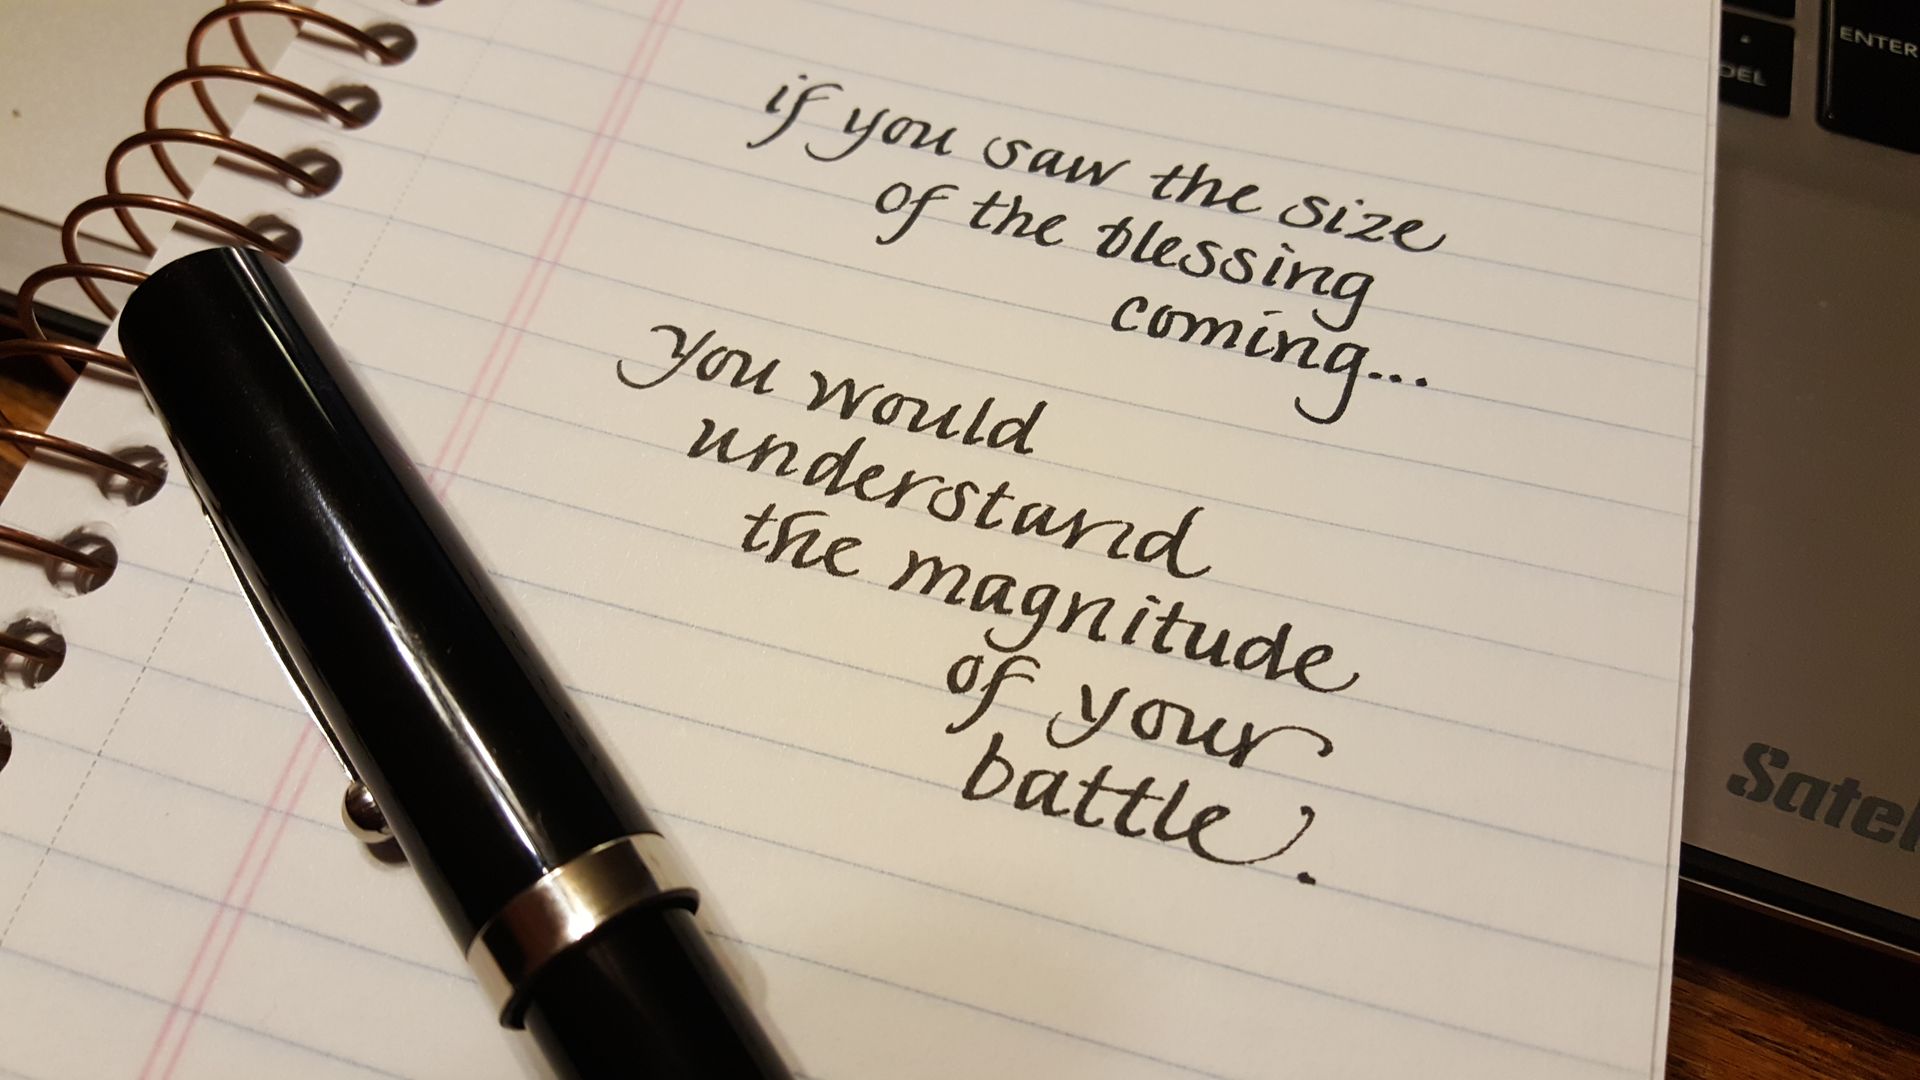 if you saw the size
of the blessing
coming...
you would
understand
the magnitude
of your
battle.
ENTER
DEL
Satel